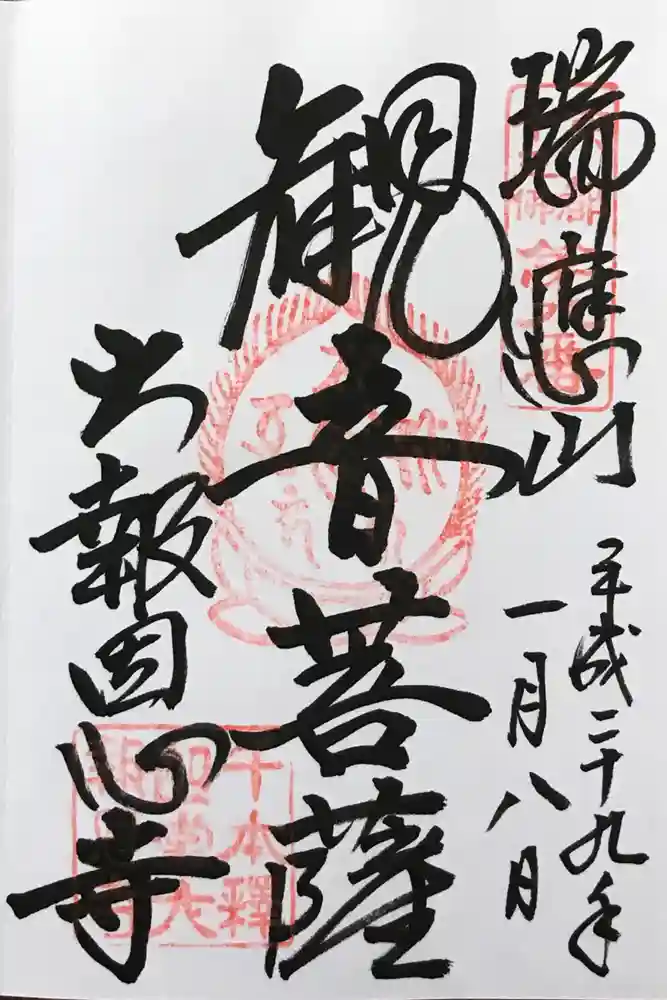 瑞應山
平成二十九年
一月八日
観音菩薩
大報恩寺
千本釋
迦堂大
報恩寺